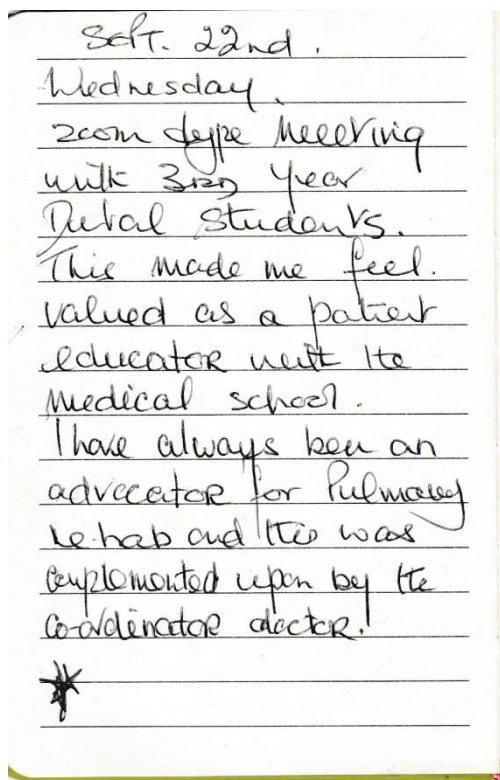 Sept. 22nd.
Wednesday.
zoom type meeting
with 3RD year
Dental students.
This made me feel.
valued as a patient
educator with the
medical school.
I have always been an
advocator for Pulmonary
rehab and this was
complemented upon by the
co-ordinator doctor!